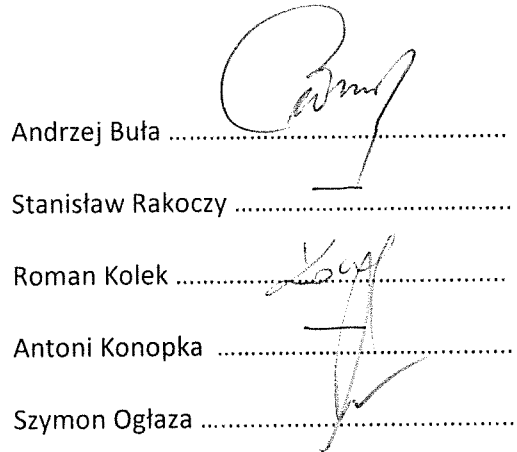 Andrzej Buła ................................................
Stanisław Rakoczy .......................................
Roman Kolek ...............................................
Antoni Konopka .........................................
Szymon Ogłaza ...........................................